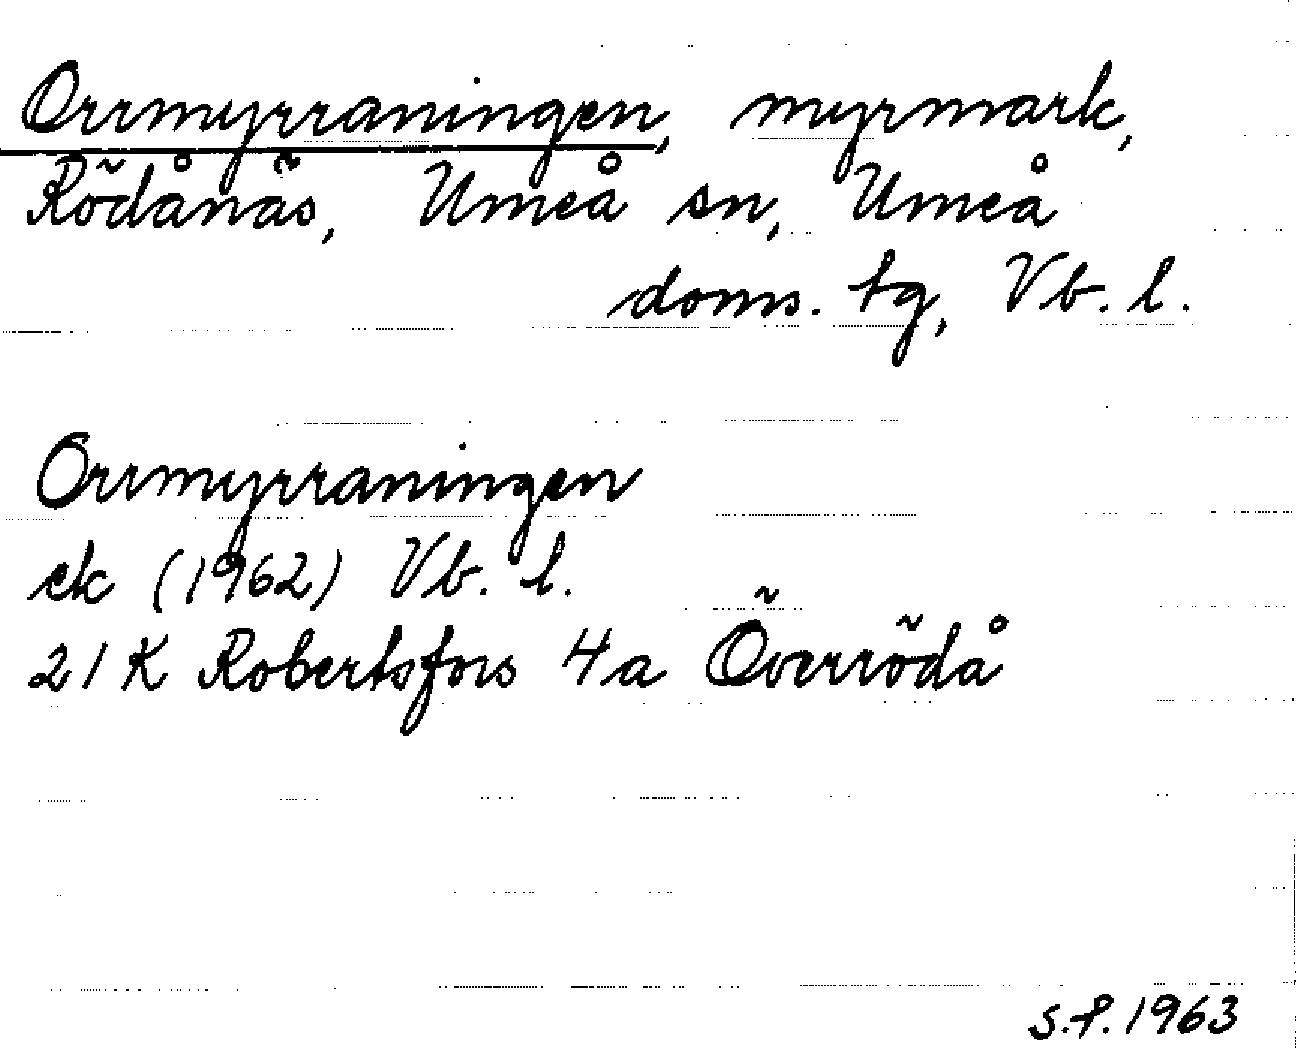 Orrmyrraningen, myrmark,
Rödånäs, Umeå sn, Umeå
doms. tg, Vb. l.
Orrmyrraningen
ek (1962) Vb. l.
21 K Robertsfors 4a Överrödå
S.P. 1963